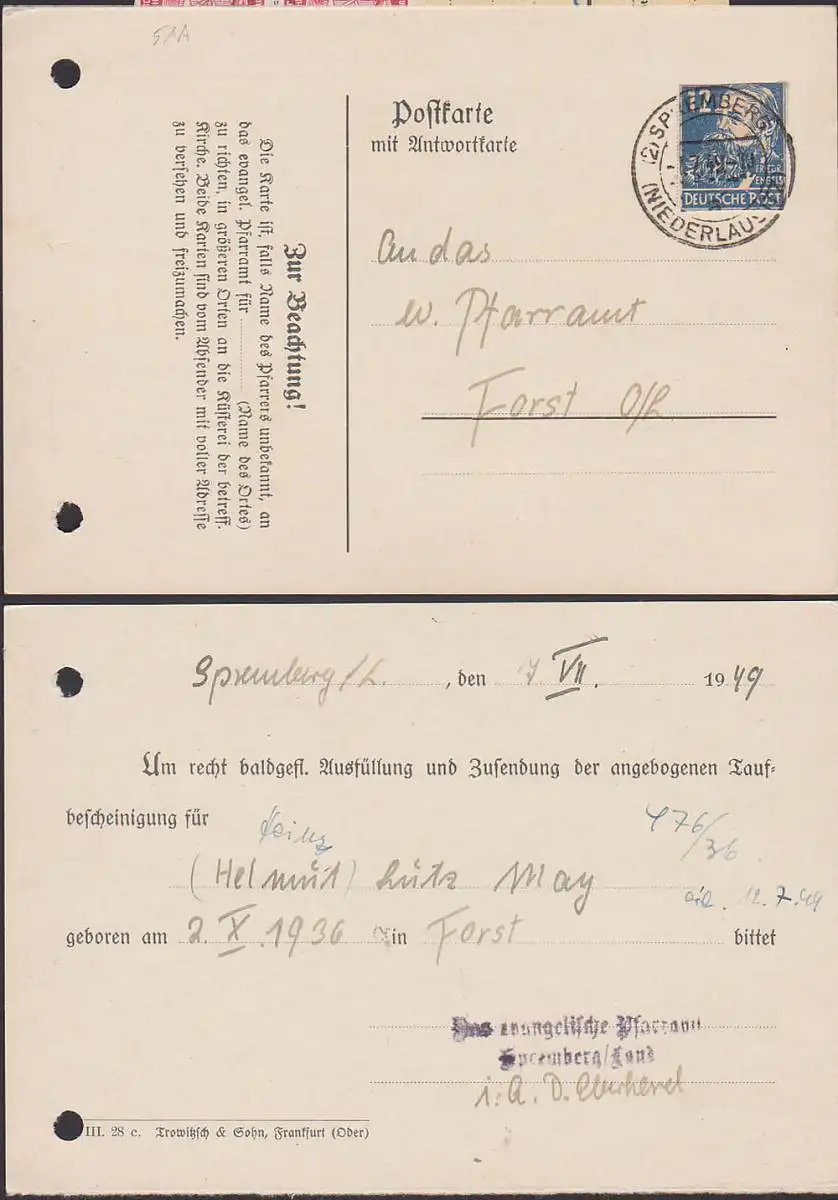 Postkarte
mit Antwortkarte
12
FRIEDR.
ENGELS
DEUTSCHE POST
(2) SPREMBERG
(NIEDERLAUSITZ)
An das
ev. Pfarramt
Forst O/L
Zur Beachtung!
Die Karte ist, falls Name des Pfarrers unbekannt, an
das evangel. Pfarramt für ............ (Name des Ortes)
zu richten, in größeren Orten an die Küsterei der betreff.
Kirche. Beide Karten sind vom Absender mit voller Adresse
zu versehen und freizumachen.
Spremberg/L. , den 7 VII. 1949
Um recht baldgefl. Ausfüllung und Zusendung der angebogenen Tauf-
bescheinigung für
Heinz
476/36
(Helmut) Lutz May
12.7.49
geboren am 2. X. 1936 in Forst bittet
Das evangelische Pfarramt
Spremberg/Land
i. A. D.
III. 28 c. Trowitzsch & Sohn, Frankfurt (Oder)